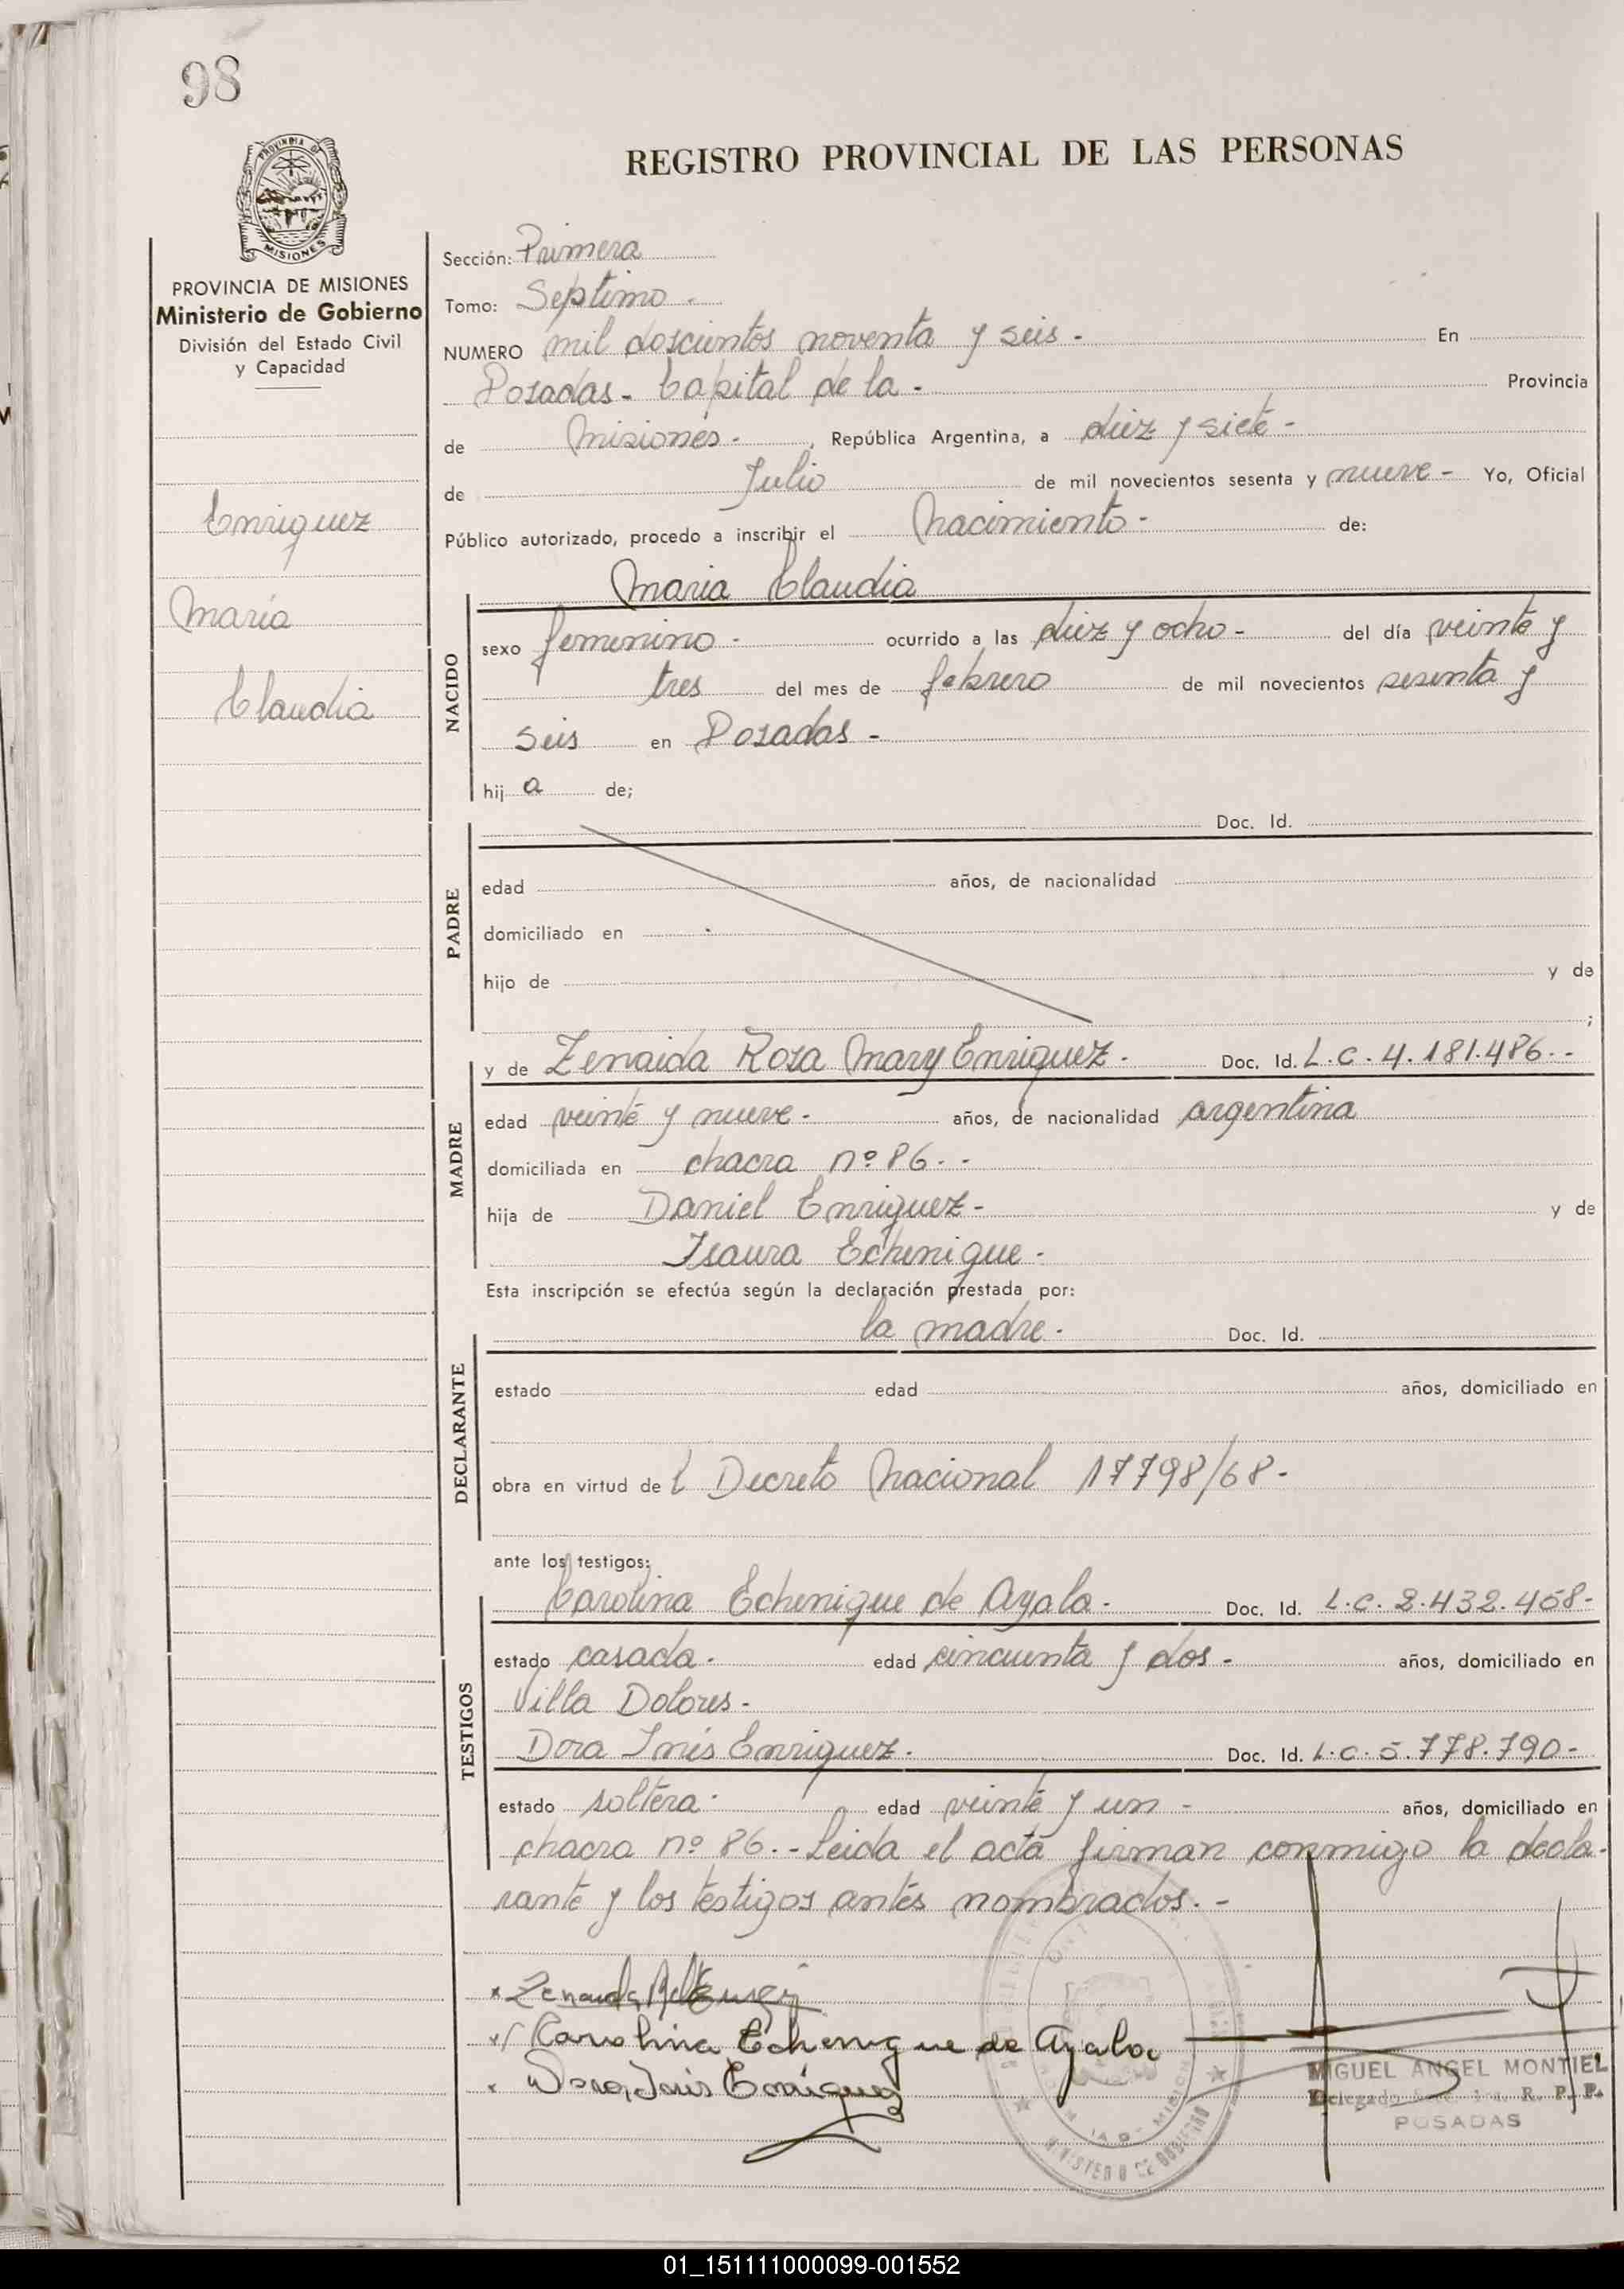 98
REGISTRO PROVINCIAL DE LAS PERSONAS
PROVINCIA DE MISIONES
Ministerio de Gobierno
División del Estado Civil
y Capacidad
Enriquez
María
Claudia
Sección: Primera
Tomo: Septimo.
NUMERO mil doscientos noventa y seis - En
Posadas - Capital de la - Provincia
de Misiones - , República Argentina, a diez y siete -
de Julio de mil novecientos sesenta y nueve - Yo, Oficial
Público autorizado, procedo a inscribir el Nacimiento - de:
Maria Claudia
NACIDO
sexo femenino - ocurrido a las diez y ocho - del día veinte y
tres del mes de febrero de mil novecientos sesenta y
seis en Posadas -
hij a de;
PADRE
Doc. Id.
edad años, de nacionalidad
domiciliado en
hijo de y de
;
MADRE
y de Zenaida Rosa Mary Enriquez - Doc. Id. L.C. 4.181.486 -
edad veinte y nueve - años, de nacionalidad argentina
domiciliada en chacra nº 86. -
hija de Daniel Enriquez - y de
Isaura Echenique -
Esta inscripción se efectúa según la declaración prestada por:
la madre - Doc. Id.
DECLARANTE
estado edad años, domiciliado en
obra en virtud de l Decreto Nacional 17798/68 -
ante los testigos:
TESTIGOS
Carolina Echenique de Ayala - Doc. Id. L.C. 2.432.458 -
estado casada - edad cincuenta y dos - años, domiciliado en
Villa Dolores -
Dora Inés Enriquez - Doc. Id. L.C. 5.778.790 -
estado soltera - edad veinte y un - años, domiciliado en
chacra nº 86. - Leida el acta firman conmigo la decla-
rante y los testigos antes nombrados. -
Carolina Echenique de Ayala
Dora Inés Enriquez
MINISTERIO DE GOBIERNO
MIGUEL ANGEL MONTIEL
Delegado R. P. P.
POSADAS
01_151111000099-001552